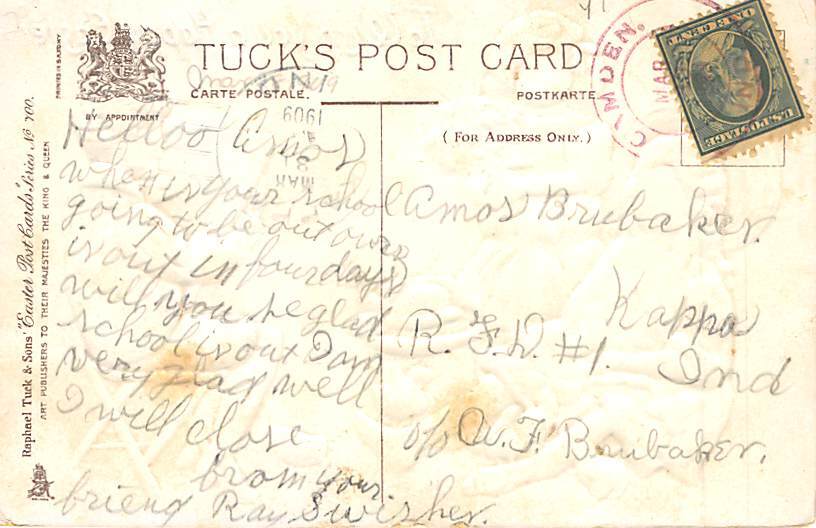 TUCK'S POST CARD
CARTE POSTALE.
POSTKARTE
BY APPOINTMENT
( FOR ADDRESS ONLY. )
PRINTED IN SAXONY
Raphael Tuck & Sons' "Easter Post Cards" Series No 700.
ART PUBLISHERS TO THEIR MAJESTIES THE KING & QUEEN
CAMDEN.
MAR
IND.
U.S. POSTAGE
ONE CENT
MAR
1909
Helloo Amos
when is your school
going to be out ours
is out in four days
will you be glad
school is out I am
very glad well
I will close
from your
friend Ray Swisher.
Amos Brubaker.
Kappa
R. F. D. #1. Ind
c/o W. F. Brubaker.